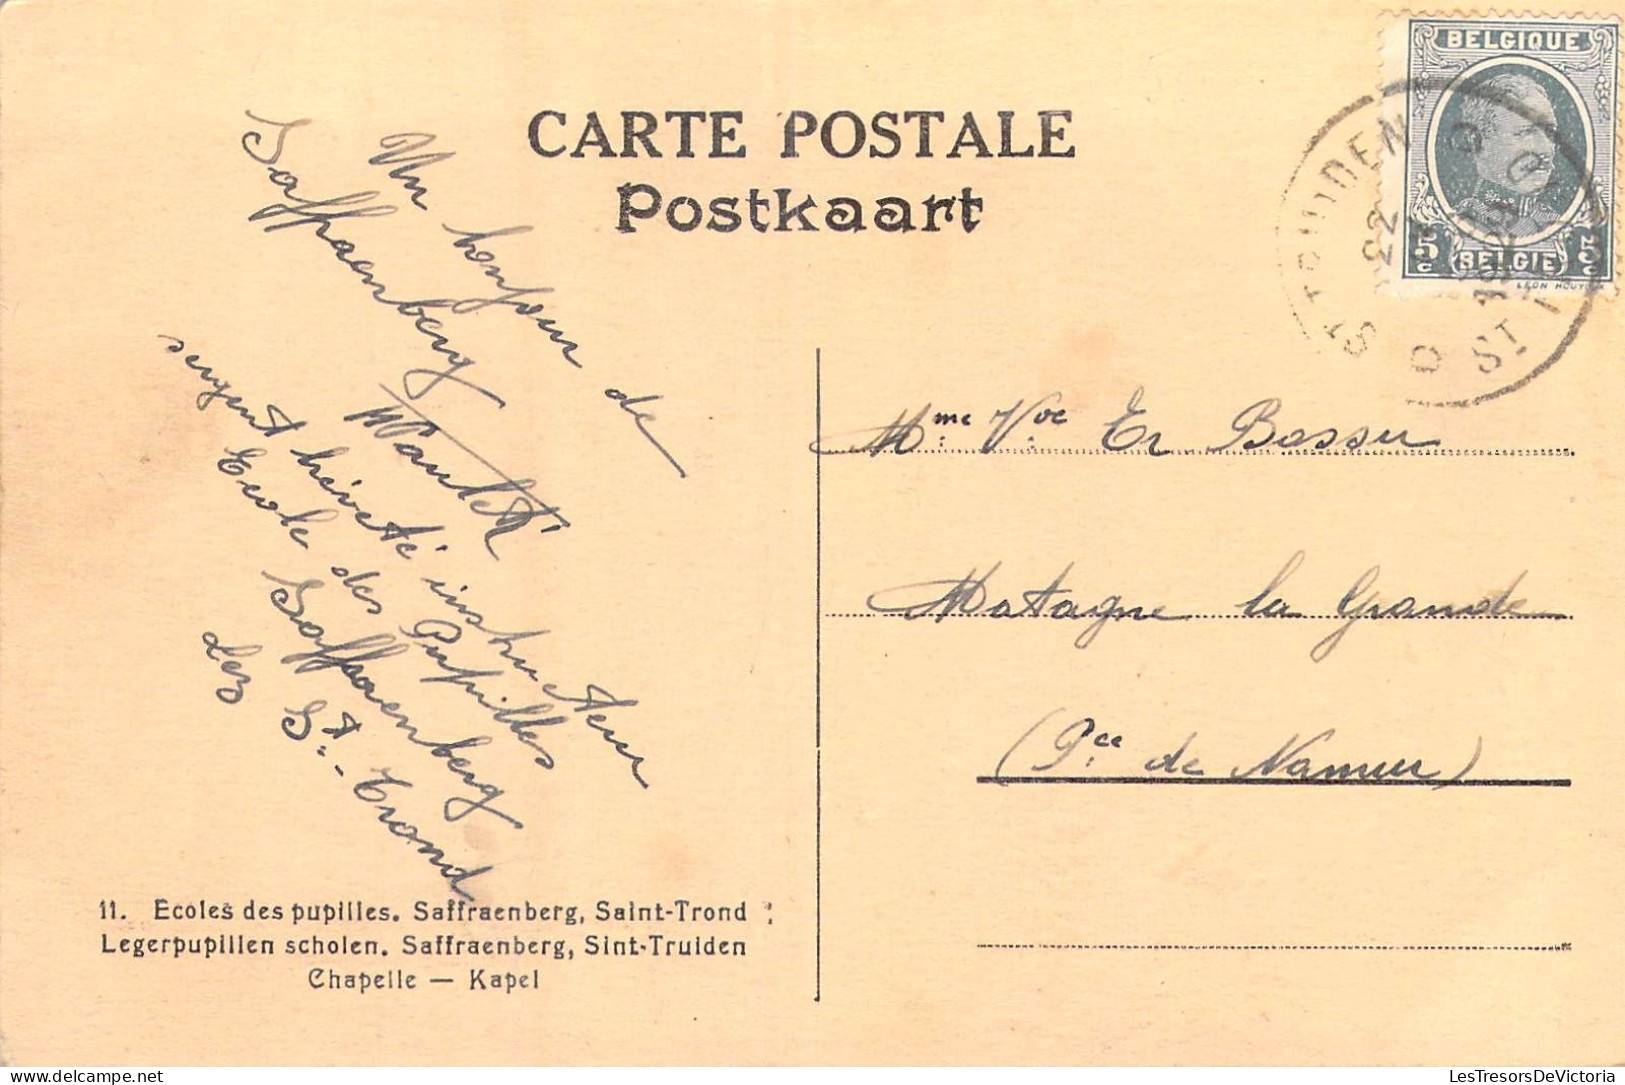 CARTE POSTALE
Postkaart
BELGIQUE
5c 5c
BELGIE
ST TRUIDEN
22
ST
Un bonjour de
Saffraenberg
sergent breveté instructeur
Ecole des Pupilles
Saffraenberg
Lez St.-Trond
Mme Vve Er Bossu
Matagne la Grande
(Pce de Namur)
11. Ecoles des pupilles. Saffraenberg, Saint-Trond
Legerpupillen scholen. Saffraenberg, Sint-Truiden
Chapelle — Kapel
LesTresorsDeVictoria